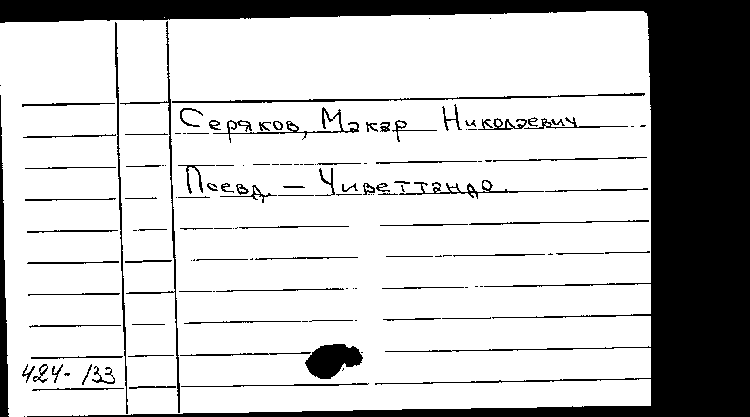 Серяков, Макар Николаевич
Псевд. — Чиветтандо.
424-133